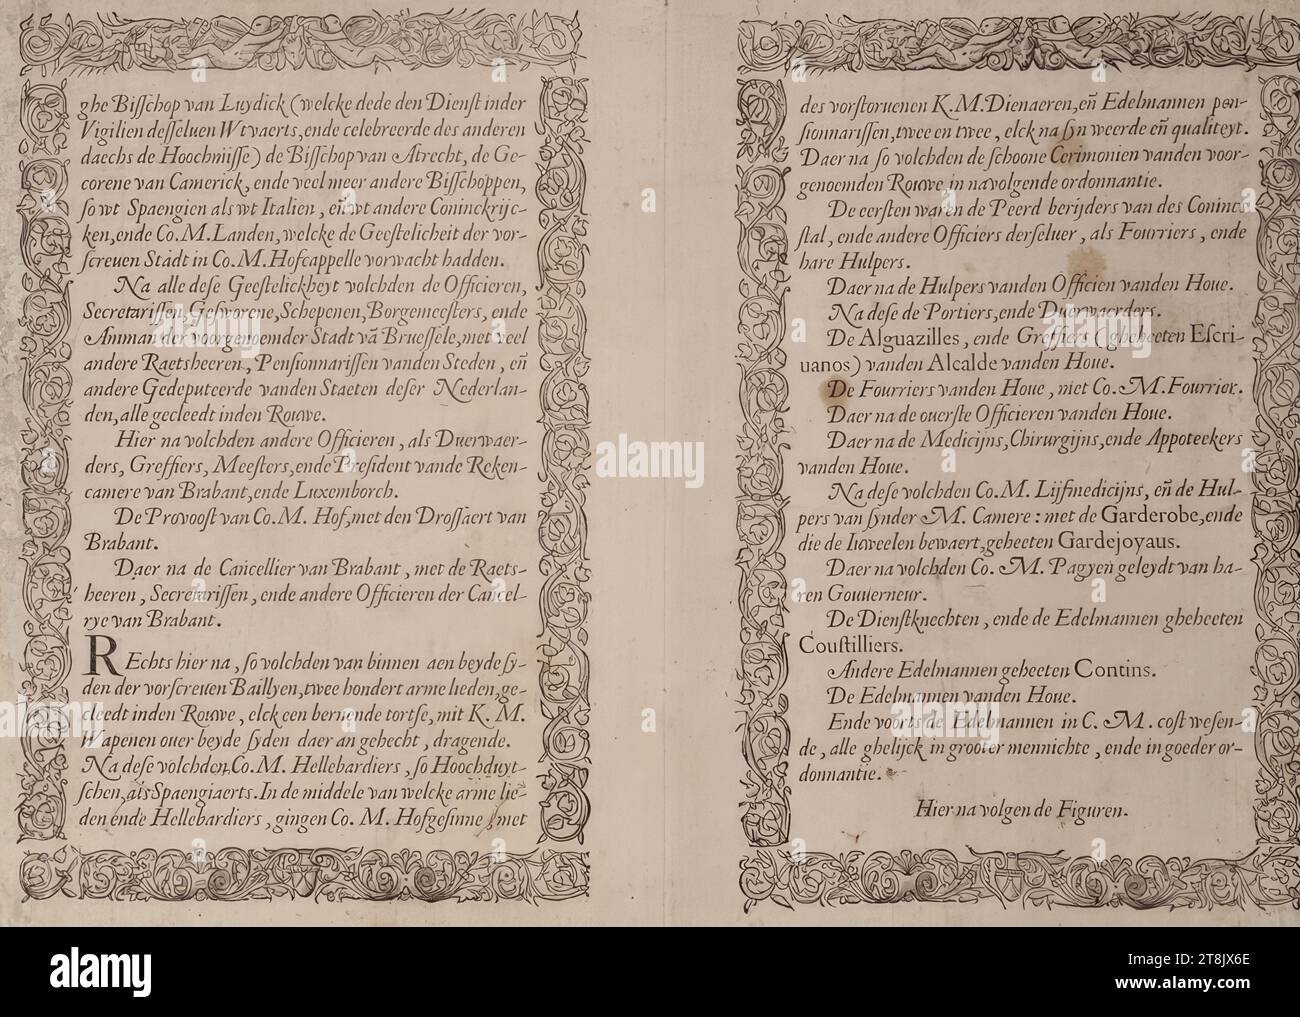 ghe Bisschop van Luydick (welcke dede den Dienst inder
Vigilien desseluen Wtvaerts, ende celebreerde des anderen
daechs de Hoochmisse) de Bisschop van Atrecht, de Ge-
corene van Camerick, ende veel meer andere Bisschoppen,
so wt Spaengien als wt Italien, eñ wt andere Coninckrijc-
ken, ende Co. M. Landen, welcke de Geestelicheit der vor-
screuen Stadt in Co. M. Hofcappelle vorwacht hadden.
Na alle dese Geestelickheyt volchden de Officieren,
Secretarissen, Gesworene, Schepenen, Borgemeesters, ende
Amman der voorgenoemder Stadt vā Bruessele, met veel
andere Raetsheeren, Pensionnarissen vanden Steden, eñ
andere Gedeputeerde vanden Staeten deser Nederlan-
den, alle gecleedt inden Rouwe.
Hier na volchden andere Officieren, als Duerwaer-
ders, Greffiers, Meesters, ende President vande Reken-
camere van Brabant, ende Luxemborch.
De Provoost van Co. M. Hof, met den Drossaert van
Brabant.
Daer na de Cancellier van Brabant, met de Raets-
heeren, Secretarissen, ende andere Officieren der Cancel-
rye van Brabant.
REchts hier na, so volchden van binnen aen beyde sy-
den der vorscreuen Baillyen, twee hondert arme lieden, ge-
cleedt inden Rouwe, elck een bernende tortse, mit K. M.
Wapenen ouer beyde syden daer an gehecht, dragende.
Na dese volchden, Co. M. Hellebardiers, so Hoochduyt-
schen, als Spaengiaerts. In de middele van welcke arme lie-
den ende Hellebardiers, gingen Co. M. Hofgesinne, met
des vorstoruenen K. M. Dienaeren, eñ Edelmannen pen-
sionnarissen, twee en twee, elck na syn weerde eñ qualiteyt.
Daer na so volchden de schoone Cerimonien vanden voor-
genoemden Rouwe in navolgende ordonnantie.
De eersten waren de Peerd berijders van des Conincs
stal, ende andere Officiers derseluer, als Fourriers, ende
hare Hulpers.
Daer na de Hulpers vanden Officien vanden Houe.
Na dese de Portiers, ende Duerwaerders.
De Alguazilles, ende Greffiers (gheheeten Escri-
uanos) vanden Alcalde vanden Houe.
De Fourriers vanden Houe, met Co. M. Fourrier.
Daer na de ouerste Officieren vanden Houe.
Daer na de Medicijns, Chirurgijns, ende Appoteekers
vanden Houe.
Na dese volchden Co. M. Lijfmedicijns, eñ de Hul-
pers van synder M. Camere: met de Garderobe, ende
die de Iuweelen bewaert, geheeten Gardejoyaus.
Daer na volchden Co. M. Pagyen geleydt van ha-
ren Gouuerneur.
De Dienstknechten, ende de Edelmannen gheheeten
Coustilliers.
Andere Edelmannen geheeten Contins.
De Edelmannen vanden Houe.
Ende voorts de Edelmannen in C. M. cost wesen-
de, alle ghelijck in grooter mennichte, ende in goeder or-
donnantie.
Hier na volgen de Figuren.
alamy
a
Image ID: 2T8JX6E
www.alamy.com